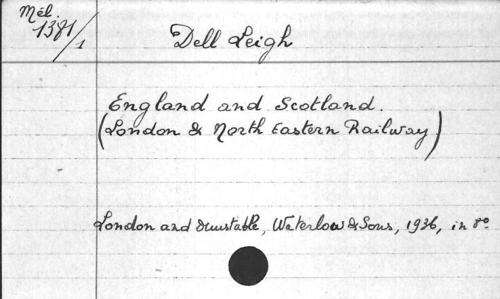 Mél.
1381/1
Dell Leigh
England and Scotland.
(London & North Eastern Railway)
London and Dunstable, Waterlow & Sons, 1936, in 8º